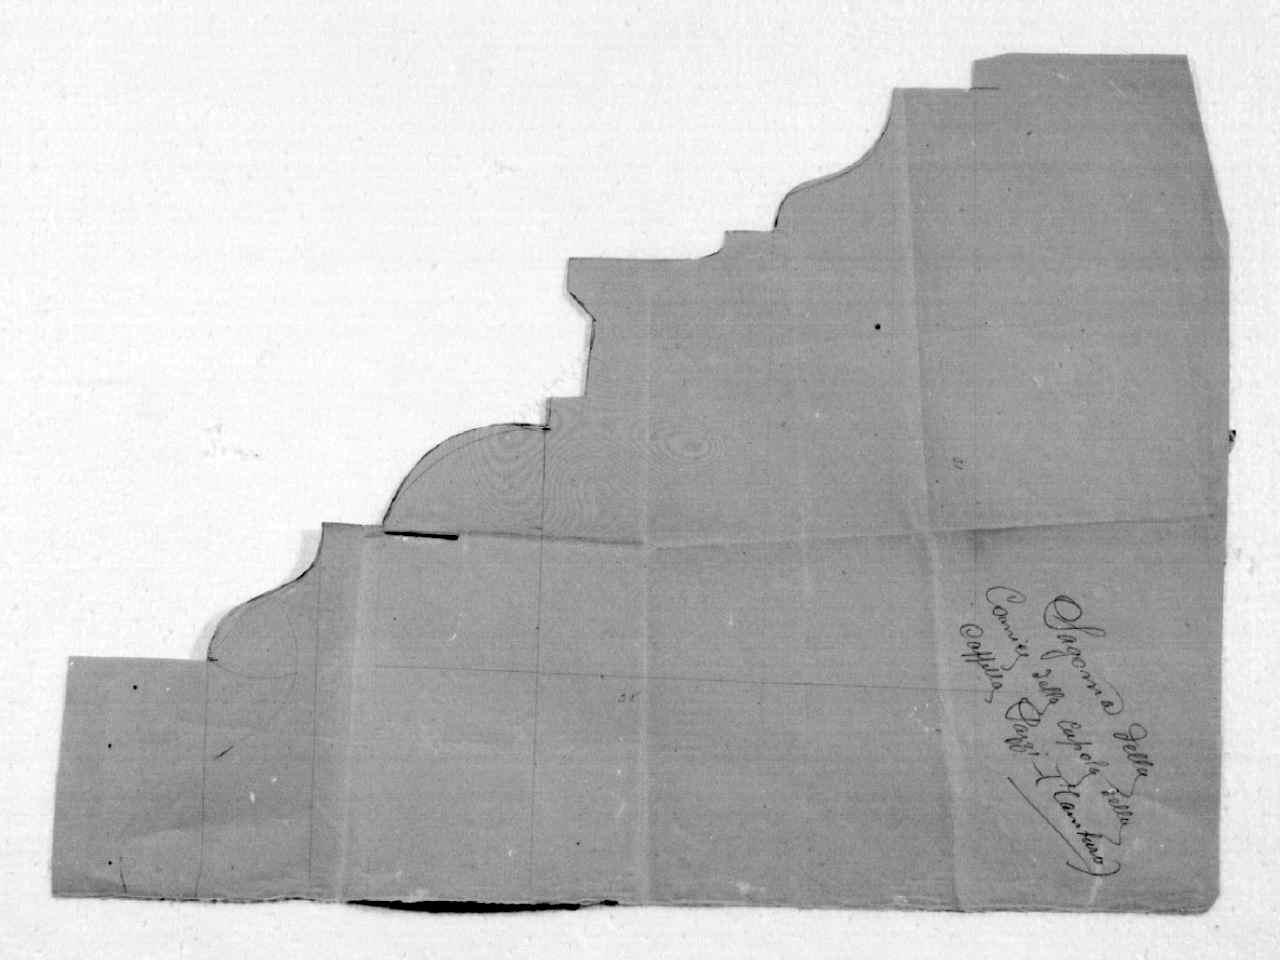 Sagoma della
Cornice della Cupola della
Cappella Pazzi